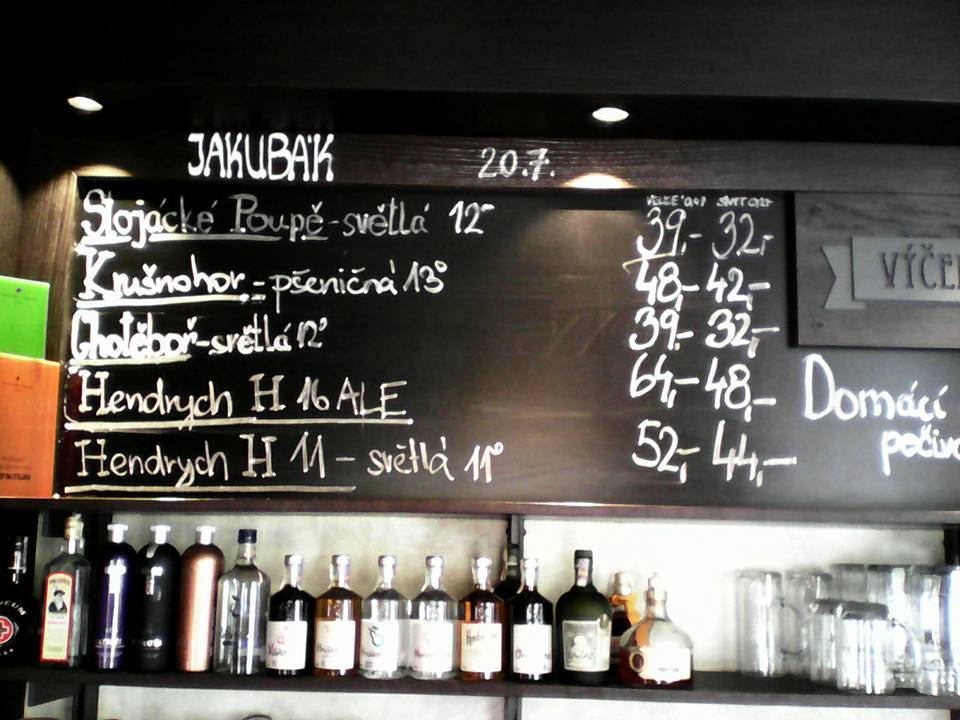 JAKUBÁK 20.7.
Stojácké Poupě - světlá 12° 39,- 32,-
Krušnohor - pšeničná 13° 48,- 42,-
Chotěboř - světlá 12° 39,- 32,-
Hendrych H 16 ALE 64,- 48,-
Hendrych H 11 - světlá 11° 52,- 44,-
VÝČE
Domácí
pečivo